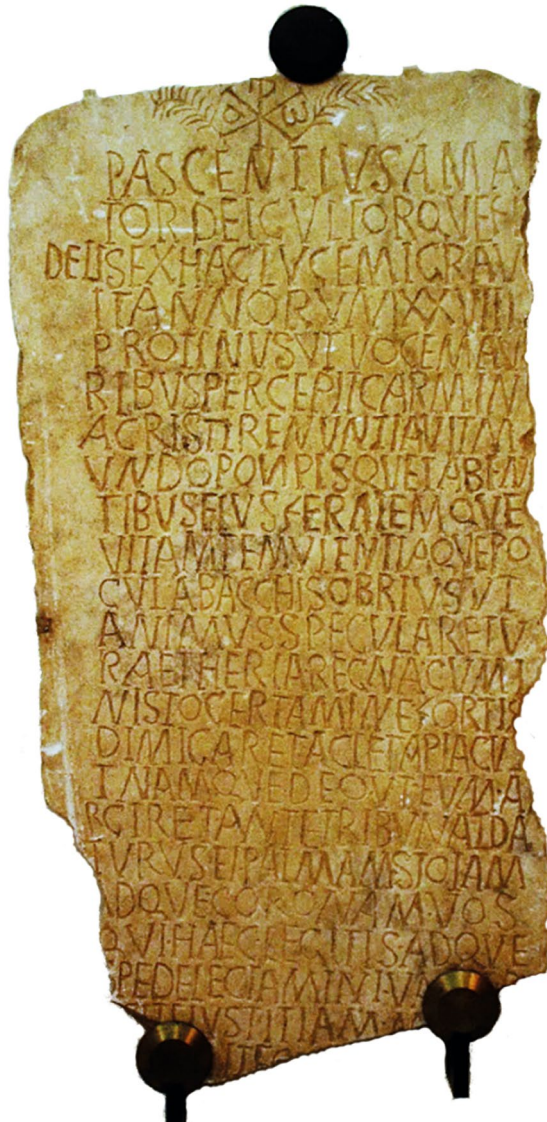 α ω
PASCENTIVS AMA
TOR DEI CVLTORQVE F
DELIS EX HAC LVCE MIGRAV
IT ANNORVM XXVIII
PROTINVS VT VOCEM AV
RIBVS PERCEPIT CARMIN
A CRISTI RENVNTIAVIT M
VNDO POMPISQVE LABEN
TIBVS EIVS FERALEMQVE
VITAM TEMVLENTIAQVE PO
CVLA BACCHI SOBRIVS VT
ANIMVS SPECVLARETV
R AETHERIA REGNA CVM I
N ISTO CERTAMINE FORTIS
DIMICARET AGLE
NAMQVE DEO VT EVM A
RCIRET ANTE TRIBVNAL DA
TVRVS EI PALMAM STOLAM
ADQVE CORONAM VOS
QVI HAEC LEGITIS ADQVE
SPE DELECTAMINI VA
IVSTITIAM